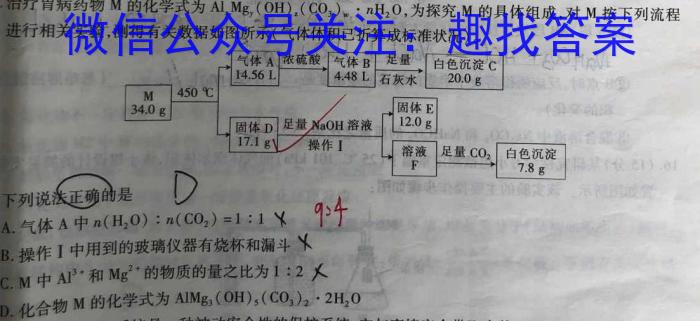 治疗胃病药物 M 的化学式为 Al Mg (OH) (CO₃) ·nH₂O,为探究 M 的具体组成,对 M 按下列流程
进行相关实验,测得有关数据如图所示(气体体积已折算成标准状况
微信公众号关注:趣找答案
M
34.0 g
450 ℃
气体 A
14.56 L
浓硫酸
气体 B
4.48 L
足量
石灰水
白色沉淀 C
20.0 g
固体 D
17.1 g
足量 NaOH 溶液
操作 Ⅰ
固体 E
12.0 g
溶液
F
足量 CO₂
白色沉淀
7.8 g
下列说法正确的是
D
A. 气体 A 中 n(H₂O) : n(CO₂) =1 : 1 ×
9:4
B. 操作 Ⅰ 中用到的玻璃仪器有烧杯和漏斗 ×
C. M 中 Al³⁺ 和 Mg²⁺ 的物质的量之比为 1 : 2 ×
D. 化合物 M 的化学式为 AlMg₃(OH)₅(CO₃)₂ · 2H₂O